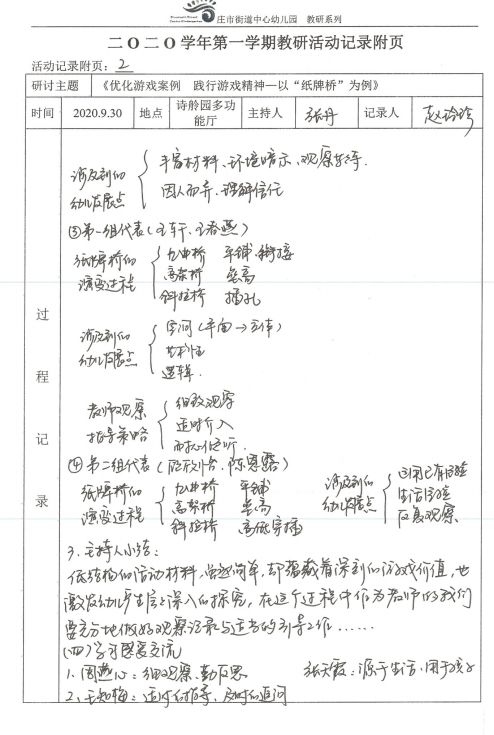 庄市街道中心幼儿园 教研系列
二〇二〇学年第一学期教研活动记录附页
活动记录附页：2
研讨主题 《优化游戏案例 践行游戏精神—以“纸牌桥”为例》
时间 2020.9.30 地点 诗舲园多功能厅 主持人 张丹 记录人 赵玲玲
过程记录
涉及到的幼儿发展点 丰富材料、环境暗示、观察等待.
因人而异、理解信任
③第一组代表（王轩、王春燕）
纸牌桥的演变过程 九曲桥 平铺、衔接
高架桥 垒高
斜拉桥 插孔
涉及到的幼儿发展点 空间（平面→立体）
艺术性
逻辑
教师观察指导策略 细致观察
适时介入
耐心倾听
④第二组代表
纸牌桥的演变过程 九曲桥 平铺
高架桥 垒高
斜拉桥 高低穿插
涉及到的幼儿发展点 运用已有经验
生活经验
反复观察
3.主持人小结：
低结构的活动材料，虽然简单，却蕴藏着深刻的游戏价值，也
激发幼儿产生深入的探究，在这个过程中作为教师的我们
要充分地做好观察记录与适当的引导工作……
（四）学习感受交流
1.周燕心：细观察、勤反思 张天霞：源于生活、用于孩子
2.王知梅：适时的指导、及时的追问